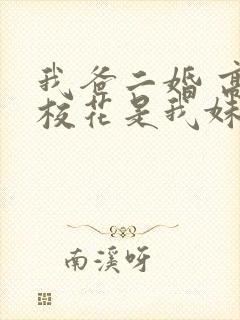 我爸二婚高
校花是我妹
南溪呀